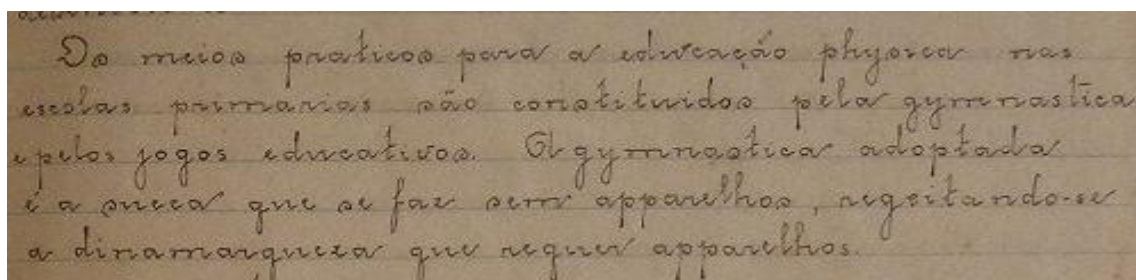 Os meios praticos para a educação physica nas
escolas primarias são constituidos pela gymnastica
e pelos jogos educativos. A gymnastica adoptada
é a sueca que se faz sem apparelhos, regeitando-se
a dinamarqueza que requer apparelhos.